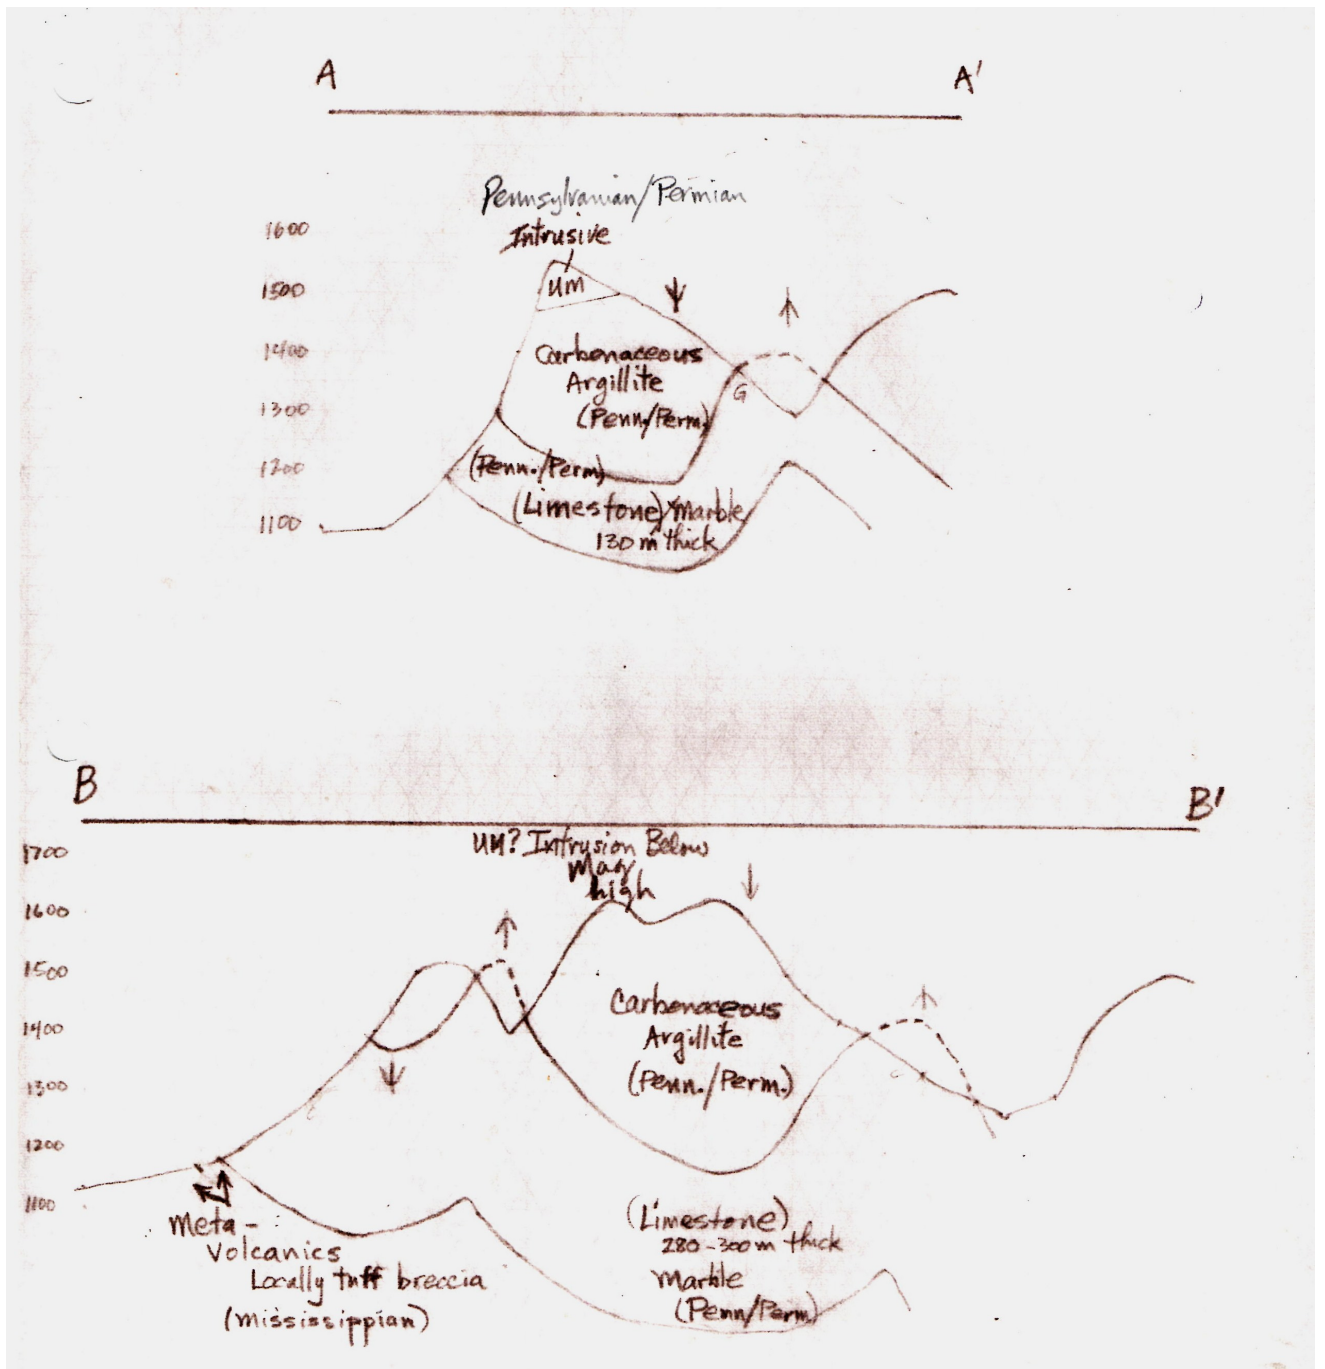 A A'
Pennsylvanian/Permian
Intrusive
1600
um
1500
1400
Carbonaceous
Argillite
(Penn./Perm.)
G
1300
1200
(Penn./Perm)
(Limestone) marble
130 m thick
1100
B B'
UM? Intrusion Below
Mag
high
1700
1600
1500
1400
Carbonaceous
Argillite
(Penn./Perm.)
1300
1200
1100
Meta-
Volcanics
Locally tuff breccia
(Mississippian)
(Limestone)
280-300m thick
Marble
(Penn/Perm)